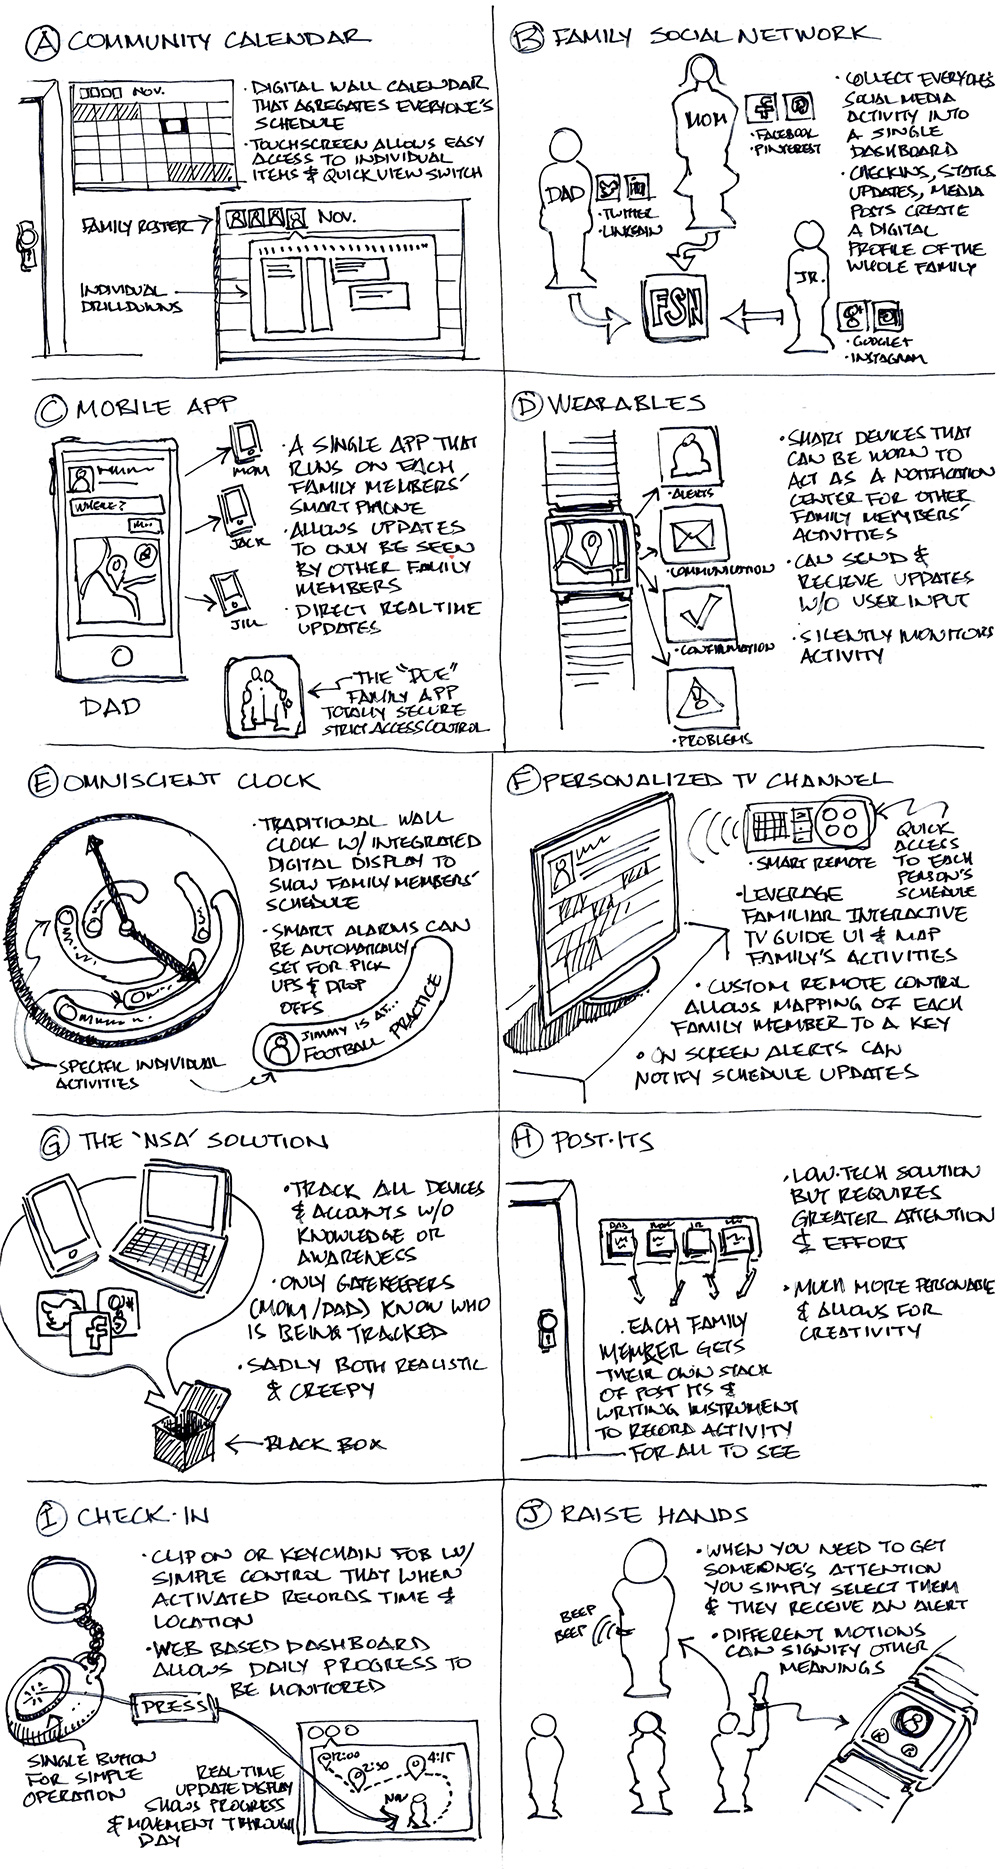 A COMMUNITY CALENDAR
NOV.
· DIGITAL WALL CALENDAR
THAT AGREGATES EVERYONE'S
SCHEDULE
· TOUCHSCREEN ALLOWS EASY
ACCESS TO INDIVIDUAL
ITEMS & QUICK VIEW SWITCH
FAMILY ROSTER
NOV.
INDIVIDUAL
DRILLDOWNS
B FAMILY SOCIAL NETWORK
MOM
· FACEBOOK
· PINTEREST
DAD
· TWITTER
· LINKEDIN
FSN
JR.
· GOOGLE+
· INSTAGRAM
· COLLECT EVERYONE'S
SOCIAL MEDIA
ACTIVITY INTO
A SINGLE
DASHBOARD
· CHECKINS, STATUS
UPDATES, MEDIA
POSTS CREATE
A DIGITAL
PROFILE OF THE
WHOLE FAMILY
C MOBILE APP
WHERE?
DAD
MOM
JACK
JILL
· A SINGLE APP THAT
RUNS ON EACH
FAMILY MEMBERS'
SMART PHONE
· ALLOWS UPDATES
TO ONLY BE SEEN
BY OTHER FAMILY
MEMBERS
· DIRECT REALTIME
UPDATES
THE "DOE"
FAMILY APP
TOTALLY SECURE
STRICT ACCESS CONTROL
D WEARABLES
· ALERTS
· COMMUNICATION
· CONFIRMATION
· PROBLEMS
· SMART DEVICES THAT
CAN BE WORN TO
ACT AS A NOTIFICATION
CENTER FOR OTHER
FAMILY MEMBERS'
ACTIVITIES
· CAN SEND &
RECIEVE UPDATES
W/O USER INPUT
· SILENTLY MONITORS
ACTIVITY
E OMNISCIENT CLOCK
· TRADITIONAL WALL
CLOCK W/ INTEGRATED
DIGITAL DISPLAY TO
SHOW FAMILY MEMBERS'
SCHEDULE
· SMART ALARMS CAN
BE AUTOMATICALLY
SET FOR PICK
UPS & DROP
OFFS
JIMMY IS AT..
FOOTBALL PRACTICE
SPECIFIC INDIVIDUAL
ACTIVITIES
F PERSONALIZED TV CHANNEL
· SMART REMOTE
QUICK
ACCESS
TO EACH
PERSON'S
SCHEDULE
· LEVERAGE
FAMILIAR INTERACTIVE
TV GUIDE UI & MAP
FAMILY'S ACTIVITIES
· CUSTOM REMOTE CONTROL
ALLOWS MAPPING OF EACH
FAMILY MEMBER TO A KEY
· ON SCREEN ALERTS CAN
NOTIFY SCHEDULE UPDATES
G THE 'NSA' SOLUTION
· TRACK ALL DEVICES
& ACCOUNTS W/O
KNOWLEDGE OR
AWARENESS
· ONLY GATEKEEPERS
(MOM/DAD) KNOW WHO
IS BEING TRACKED
· SADLY BOTH REALISTIC
& CREEPY
BLACK BOX
H POST-ITS
DAD
JR
· EACH FAMILY
MEMBER GETS
THEIR OWN STACK
OF POST ITS &
WRITING INSTRUMENT
TO RECORD ACTIVITY
FOR ALL TO SEE
· LOW-TECH SOLUTION
BUT REQUIRES
GREATER ATTENTION
& EFFORT
· MUCH MORE PERSONABLE
& ALLOWS FOR
CREATIVITY
I CHECK-IN
· CLIP ON OR KEYCHAIN FOB W/
SIMPLE CONTROL THAT WHEN
ACTIVATED RECORDS TIME &
LOCATION
· WEB BASED DASHBOARD
ALLOWS DAILY PROGRESS TO
BE MONITORED
PRESS
SINGLE BUTTON
FOR SIMPLE
OPERATION
REALTIME
UPDATE DISPLAY
SHOWS PROGRESS
& MOVEMENT THROUGH
DAY
@12:00
2:30
4:15
NOW
J RAISE HANDS
BEEP
BEEP
· WHEN YOU NEED TO GET
SOMEONE'S ATTENTION
YOU SIMPLY SELECT THEM
& THEY RECEIVE AN ALERT
· DIFFERENT MOTIONS
CAN SIGNIFY OTHER
MEANINGS